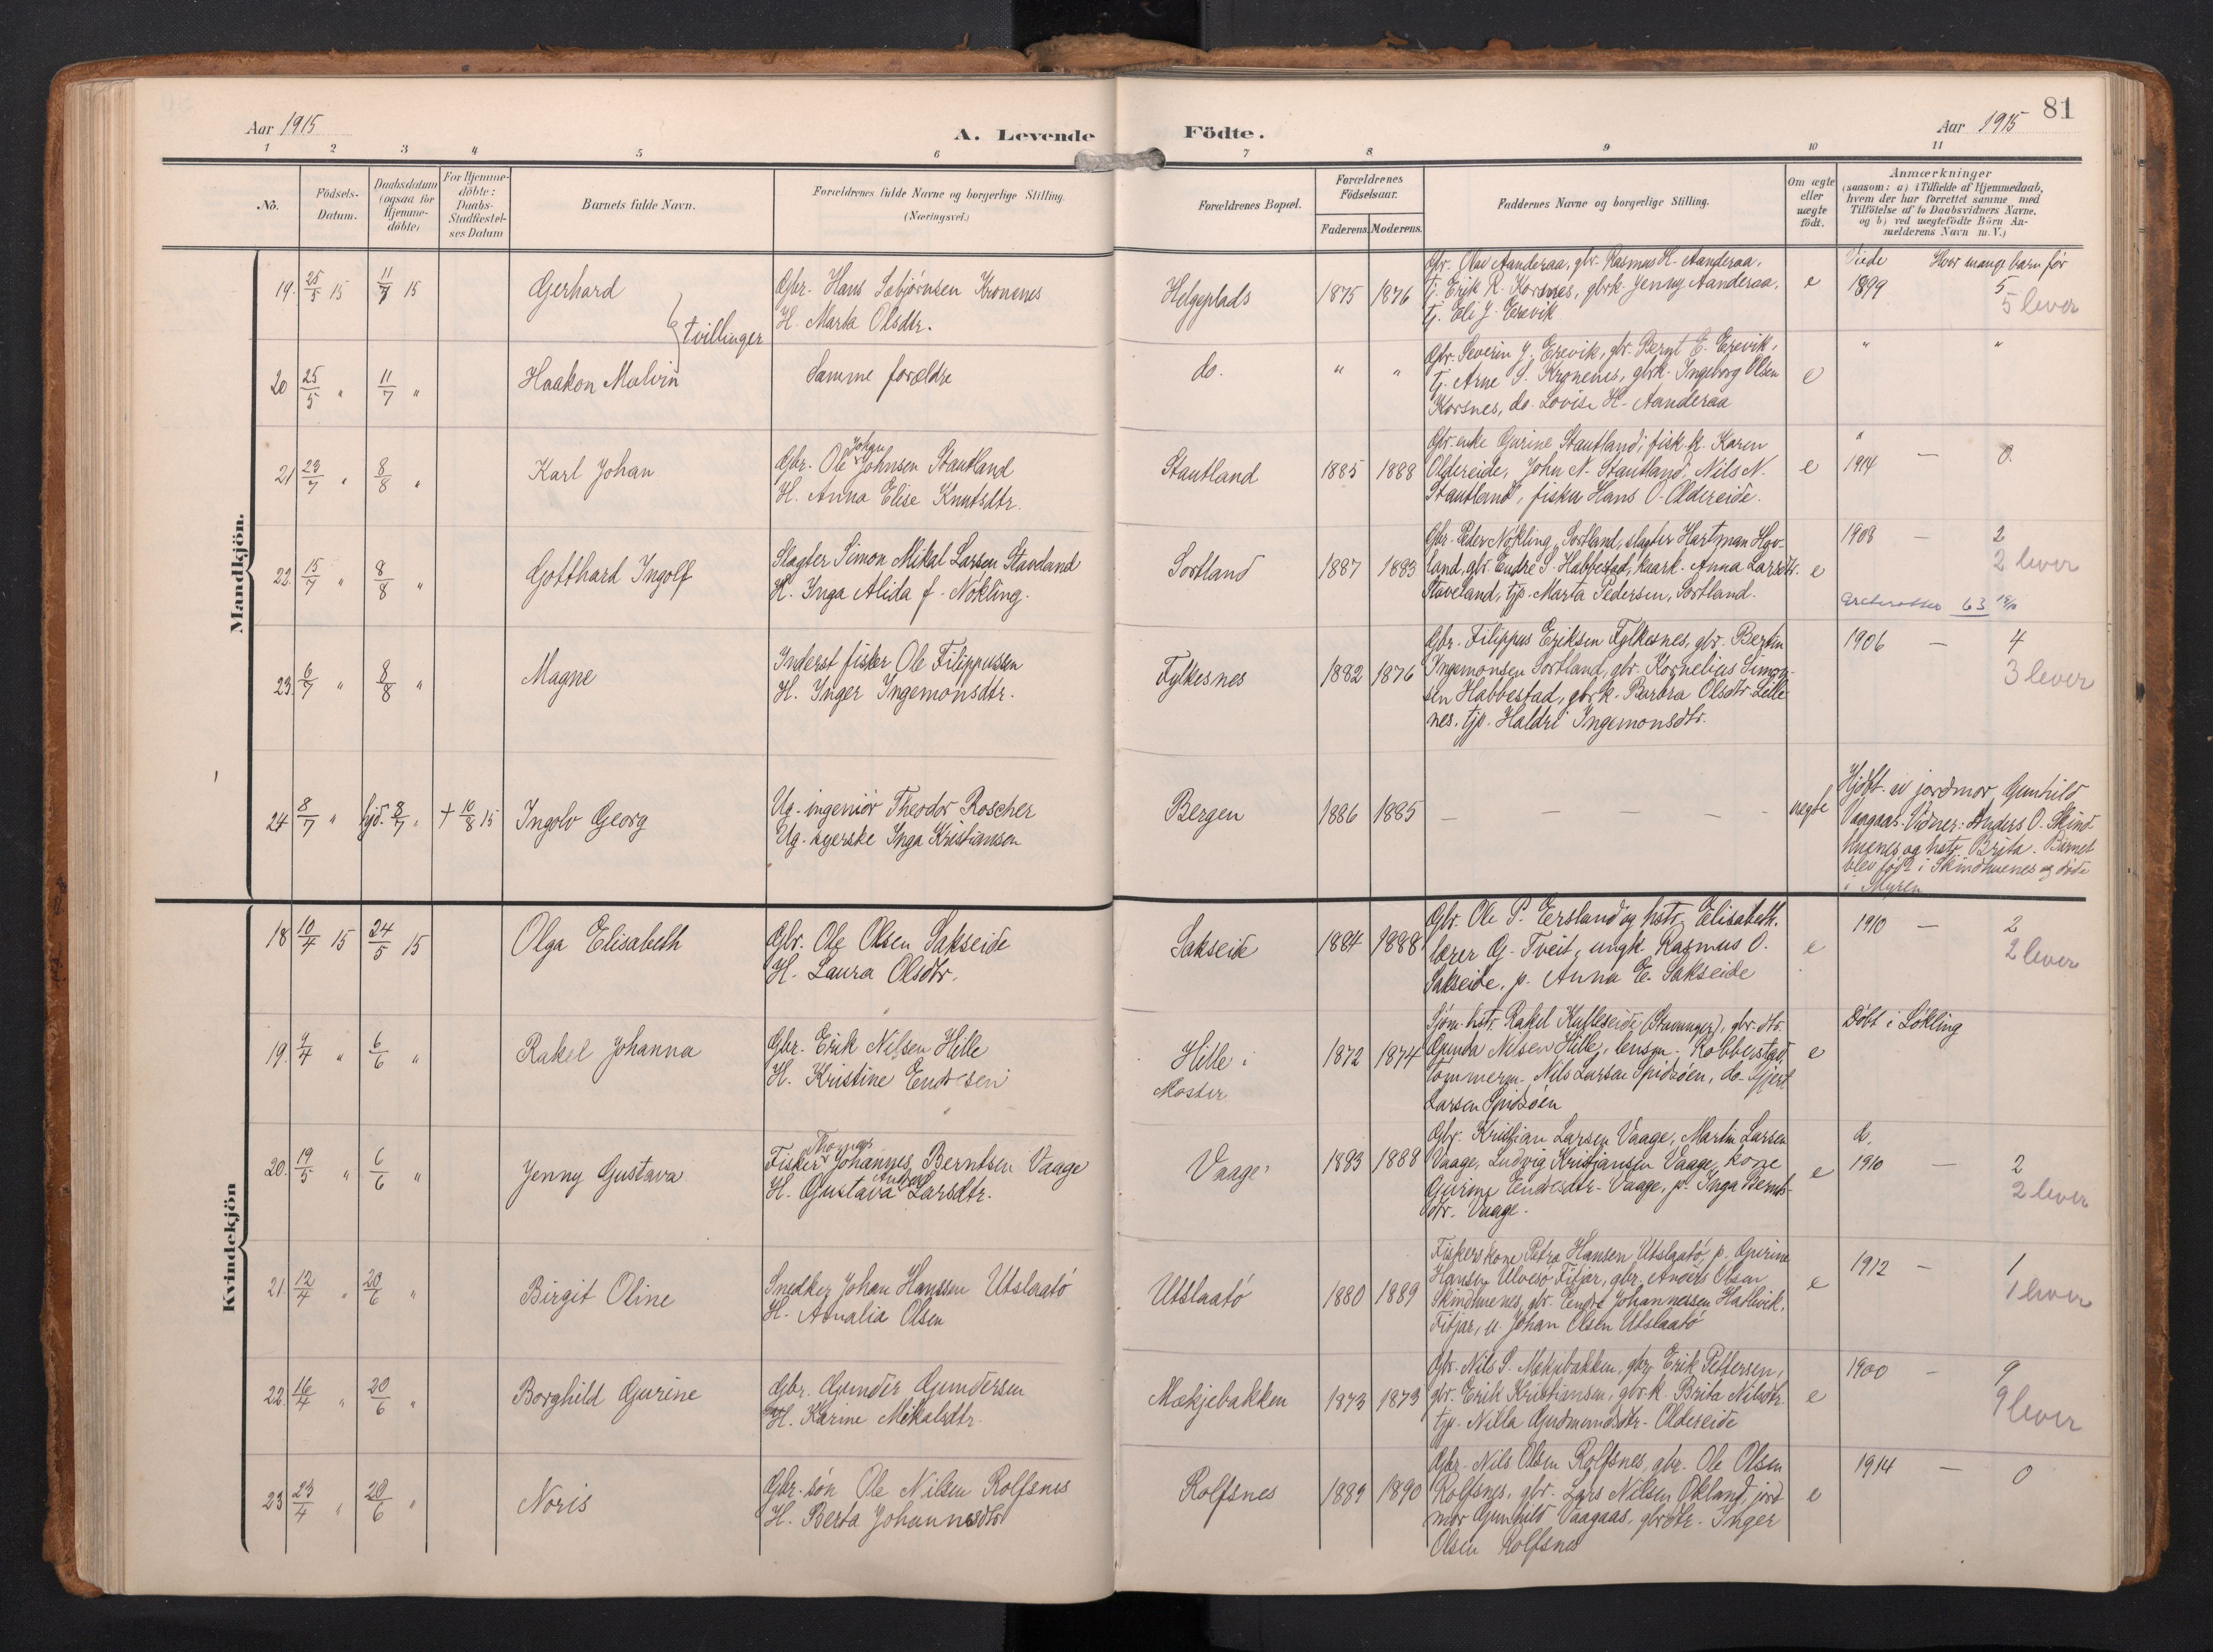 81
Aar 1915
A. Levende Födte.
Aar 1915
1 2 3 4 5 6 7 8 9 10 11
No.
Födsels-
Datum.
Daabsdatum
(ogsaa for
Hjemme-
döbte)
For Hjemme-
döbte:
Daabs-
Stadfæstel-
ses Datum
Barnets fulde Navn.
Forældrenes fulde Navne og borgerlige Stilling.
(Næringsvei.)
Forældrenes Bopæl.
Forældrenes
Födselsaar.
Faderens. Moderens.
Faddernes Navne og borgerlige Stilling.
Om ægte
eller
uægte
födt.
Anmærkninger
(saasom: a) i Tilfælde af Hjemmedaab,
hvem der har forrettet samme med
Tilföielse af to Daabsvidners Navne,
og b) ved uægtefödte Börn An-
melderens Navn m. V.)
Mandkjön.
19. 25/5 15 11/7 15
Gerhard
Gbr. Hans Sebjørnsen Kronenes
H. Marta Olsdtr.
Helgeplads
1875 1876
Gbr. Olav Aanderaa, gbr. Rasmus H. Aanderaa,
tj. Erik R. Korsnes, gbrk. Jenny Aanderaa,
tj. Eli J. Erevik
e
Viede Hvor mange barn før
1899 5
5 lever
tvillinger
20 25/5 " 11/7 "
Haakon Malvin
Samme forældre
do.
" "
Gbr. Severin J. Erevik, gbr. Bernt E. Erevik,
tj. Arne S. Kronenes, gbrk. Ingeborg Olsen
Korsnes, do. Lovise H. Aanderaa
e
" "
21 23/7 " 8/8 "
Karl Johan
Johan
Gbr. Ole Johnsen Stautland
H. Anna Elise Knutsdtr.
Stautland
1885 1888
Gbr. enke Gurine Stautland, fisk. k. Karen
Oldereide, John N. Stautland, Nils N.
Stautland, fisker Hans O. Oldereide.
e
"
1914 — 0.
22. 15/7 " 8/8 "
Gotthard Ingolf
Slagter Simon Mikal Larsen Staveland
H. Inga Alida f. Nökling.
Sortland
1887 1883
Gbr. Peder Nökling, Sortland, slagter Hartman Hov-
land, gbr. Endre S. Habbestad, kaark. Anna Larsdtr.
Staveland, tjp. Marta Pedersen, Sortland.
e
1908 — 2
2 lever
63
23. 6/7 " 8/8 "
Magne
Inderst fisker Ole Filippussen
H. Inger Ingemonsdtr.
Fylkesnes
1882 1876
Gbr. Filippus Eriksen Fylkesnes, gbr. Bertin
Ingemonsen Sortland, gbr. Kornelius Simon-
sen Habbestad, gbrk. Barbra Olsdtr. Lille-
nes, tjp. Haldri Ingemonsdtr.
1906 — 4
3 lever
24 8/7 " hjd. 8/7 " + 10/8 15
Ingolv Georg
Ug. ingeniør Theodor Roscher
Ug. syerske Inga Kristiansen
Bergen
1886 1885
— — — — —
uægte
Hjdbt. av jordmor Gunhild
Vaagaas. Vidner: Anders O. Skind-
huenes og hstr. Brita. Barnet
blev født i Skindhuenes og døde
i Myren
Kvindekjön
18 10/4 15 24/5 15
Olga Elisabeth
Gbr. Ole Olsen Sakseide
H. Laura Olsdtr.
Sakseide
1884 1888
Gbr. Ole P. Eersland og hstr. Elisabeth,
lærer G. Tveit, ungk. Rasmus O.
Sakseide, p. Anna E. Sakseide
e
1910 — 2
2 lever
19. 9/4 " 6/6 "
Rakel Johanna
Gbr. Erik Nilsen Hille
H. Kristine Endresen
Hille i
Moster
1872 1874
Sjøm. hstr. Rakel Kulleseide (Stavanger), gbr. dtr.
Gunda Nilsen Hille, lensm. Robberstad,
tømmerm. Nils Larsen Spidsöen, do. Gjert
Larsen Spidsöen
e
Døbt i Løkling
20. 19/5 " 6/6 "
Jenny Gustava
Thomas
Fisker Johannes Berntsen Vaage
H. Gustava Larsdtr.
Vaage
1893 1888
Gbr. Kristian Larsen Vaage, Martin Larsen
Vaage, Ludvig Kristjansen Vaage, kone
Gurine Endresdtr. Vaage, p. Inga Bernts-
dtr. Vaage.
e
1910 — 2
2 lever
21. 12/4 " 20/6 "
Birgit Oline
Snedker Johan Hanssen Utslaatö
H. Amalia Olsen
Utslaatö
1880 1889
Fiskers kone Petra Hansen Utslaatö, p. Gurine
Hansen Ulvesö Fitjar, gbr. Anders Olsen
Skindhuenes, gbr. Endre Johannessen Hatlevik,
Fitjar, u. Johan Olsen Utslaatö
e
1912 — 1
1 lever
22. 16/4 " 20/6 "
Borghild Gurine
Gbr. Gunder Gundersen
H. Karine Mikalsdtr.
Mækjebakken
1873 1873
Gbr. Nils P. Mekjebakken, gbr. Erik Pettersen,
gbr. Erik Kristiansen, gbr. k. Brita Nilsdtr.
tjp. Nilla Gudmundsdtr. Oldereide
e
1900 — 9
9 lever
23 23/4 " 20/6 "
Noris
Gbr. søn Ole Nilsen Rolfsnes
H. Berta Johannesdtr.
Rolfsnes
1889 1890
Gbr. Nils Olsen Rolfsnes, gbr. Ole Olsen
Rolfsnes, gbr. Lars Nilsen Økland, jord-
mor Gunhild Vaagaas, gbrdtr. Inger
Olsen Rolfsnes
e
1914 — 0